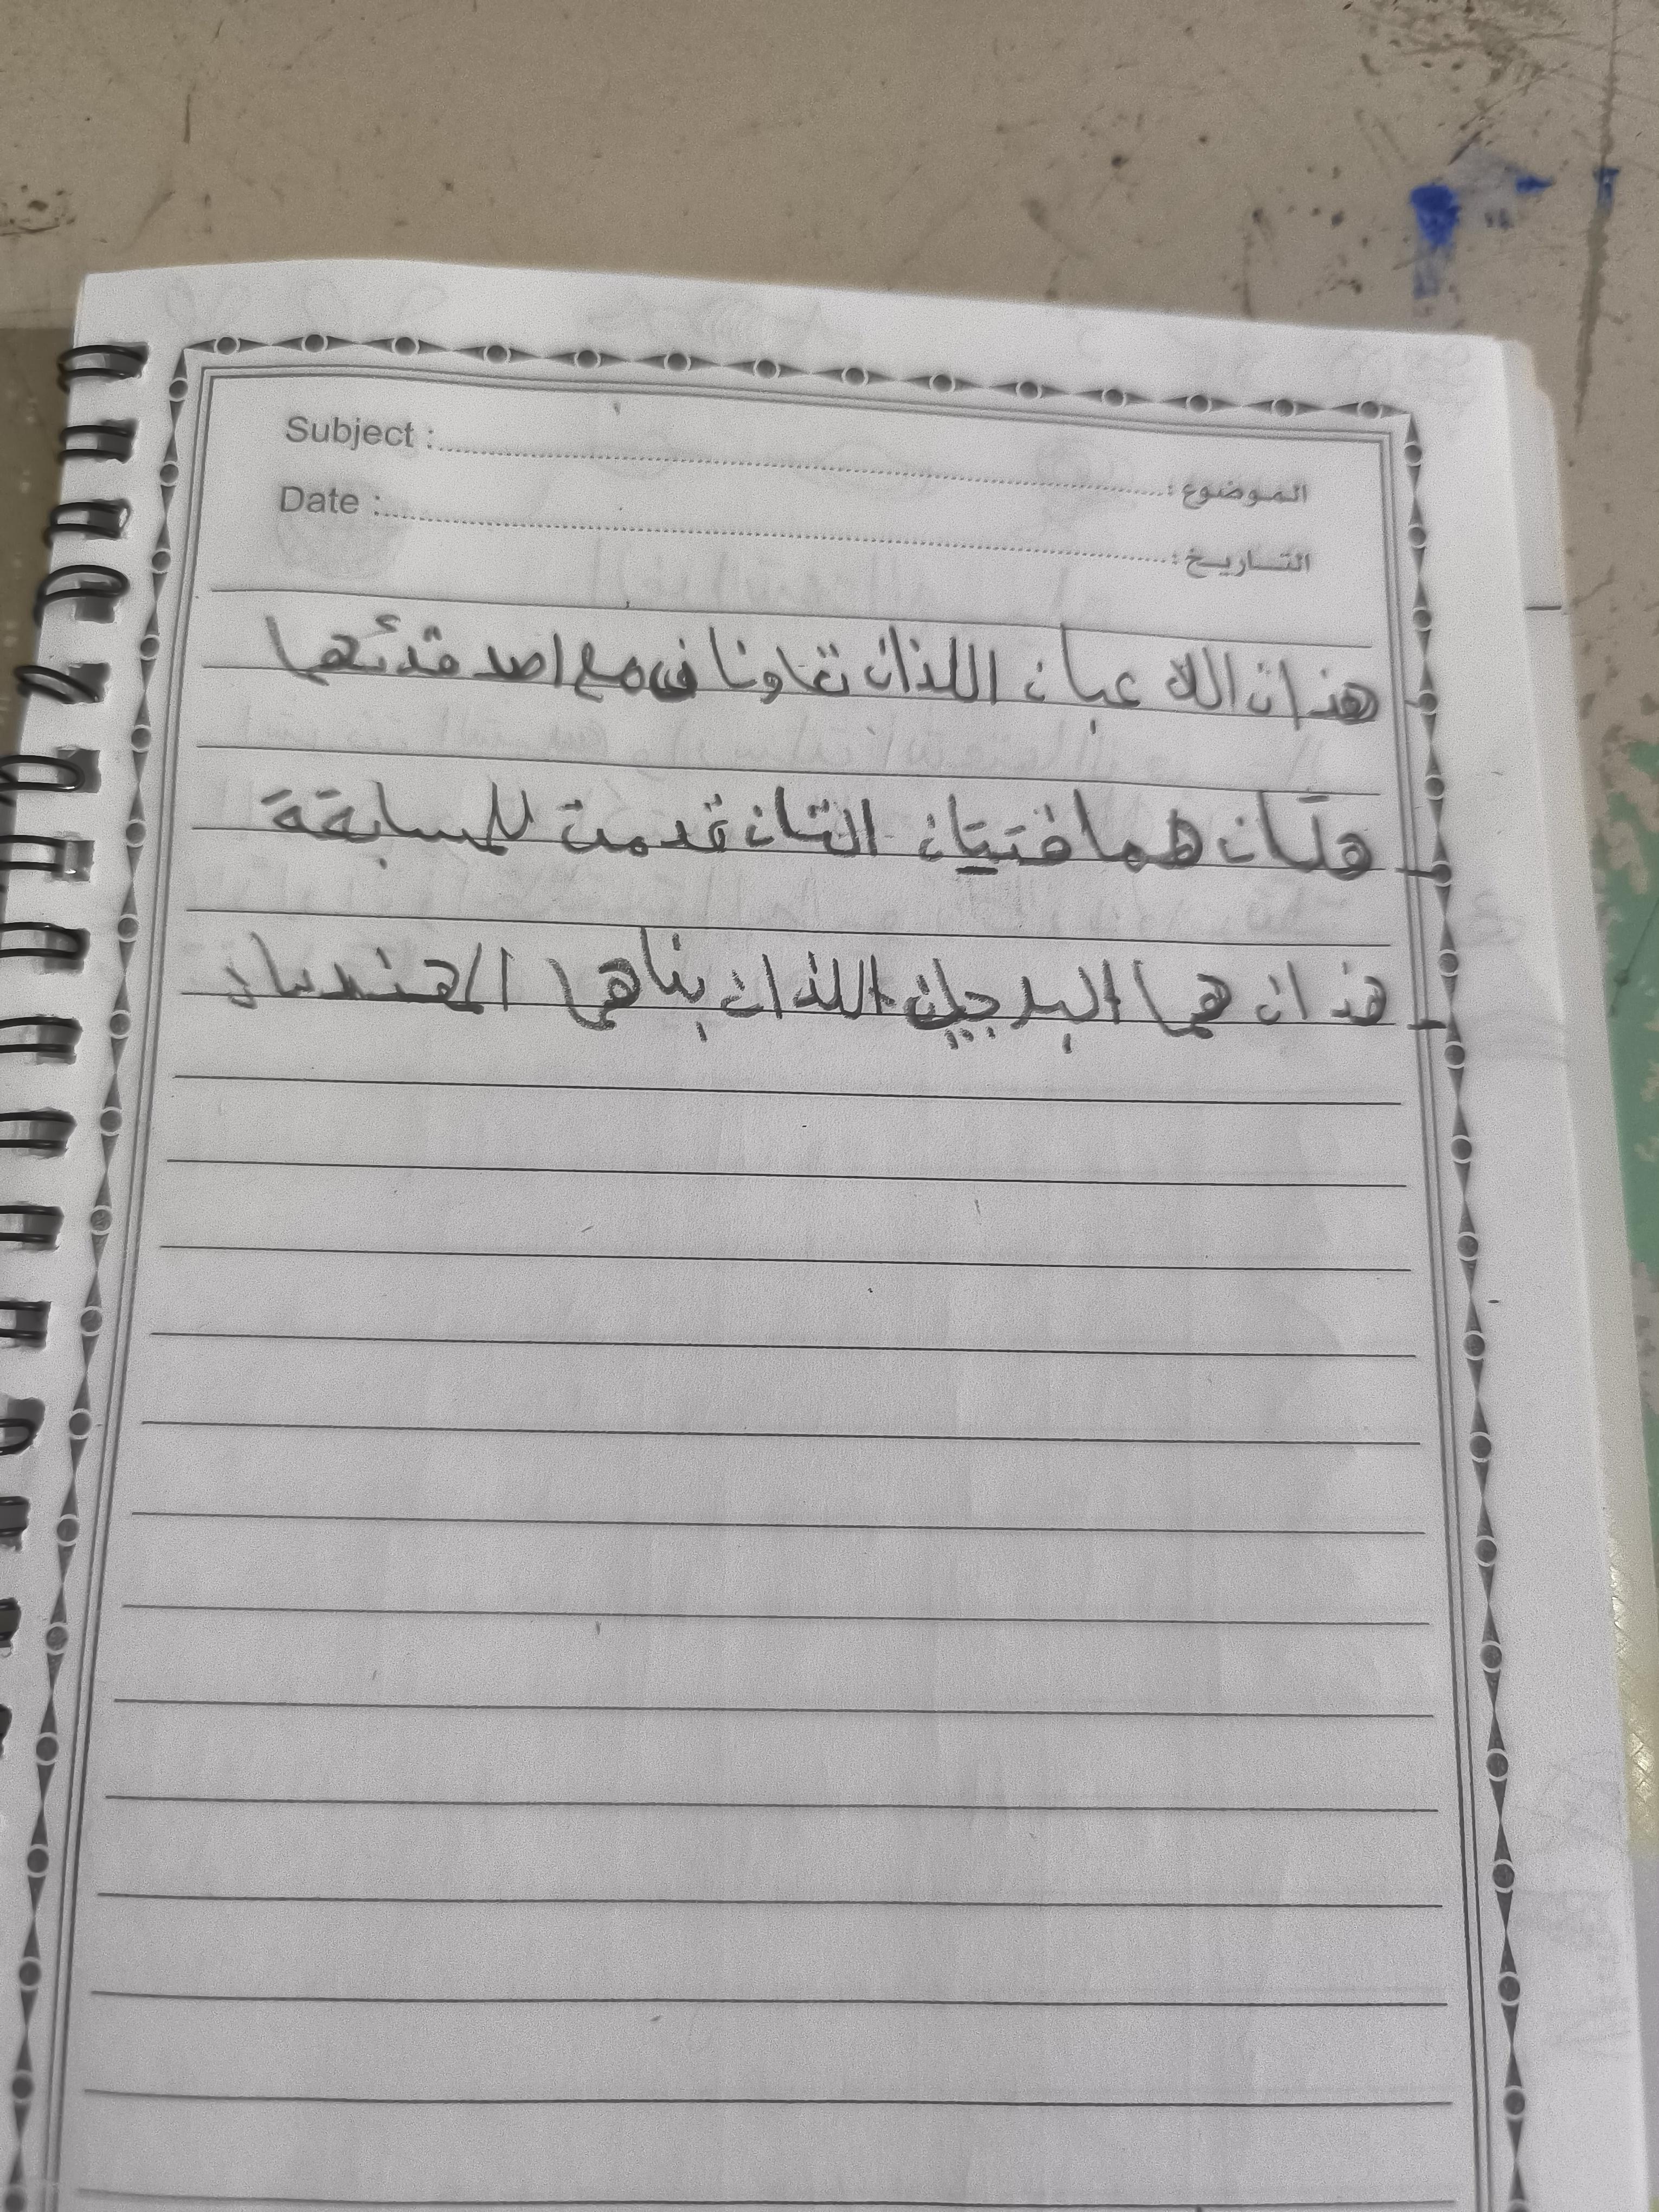 Subject : الموضوع :
Date : التاريخ :
هذان اللاعبان اللذان تعاونا في مع اصدقدئهما
- هتان هما فتيتان التان قدمت للمسابقة
- هذان هما البرجيان اللذان بناهما المهندسان